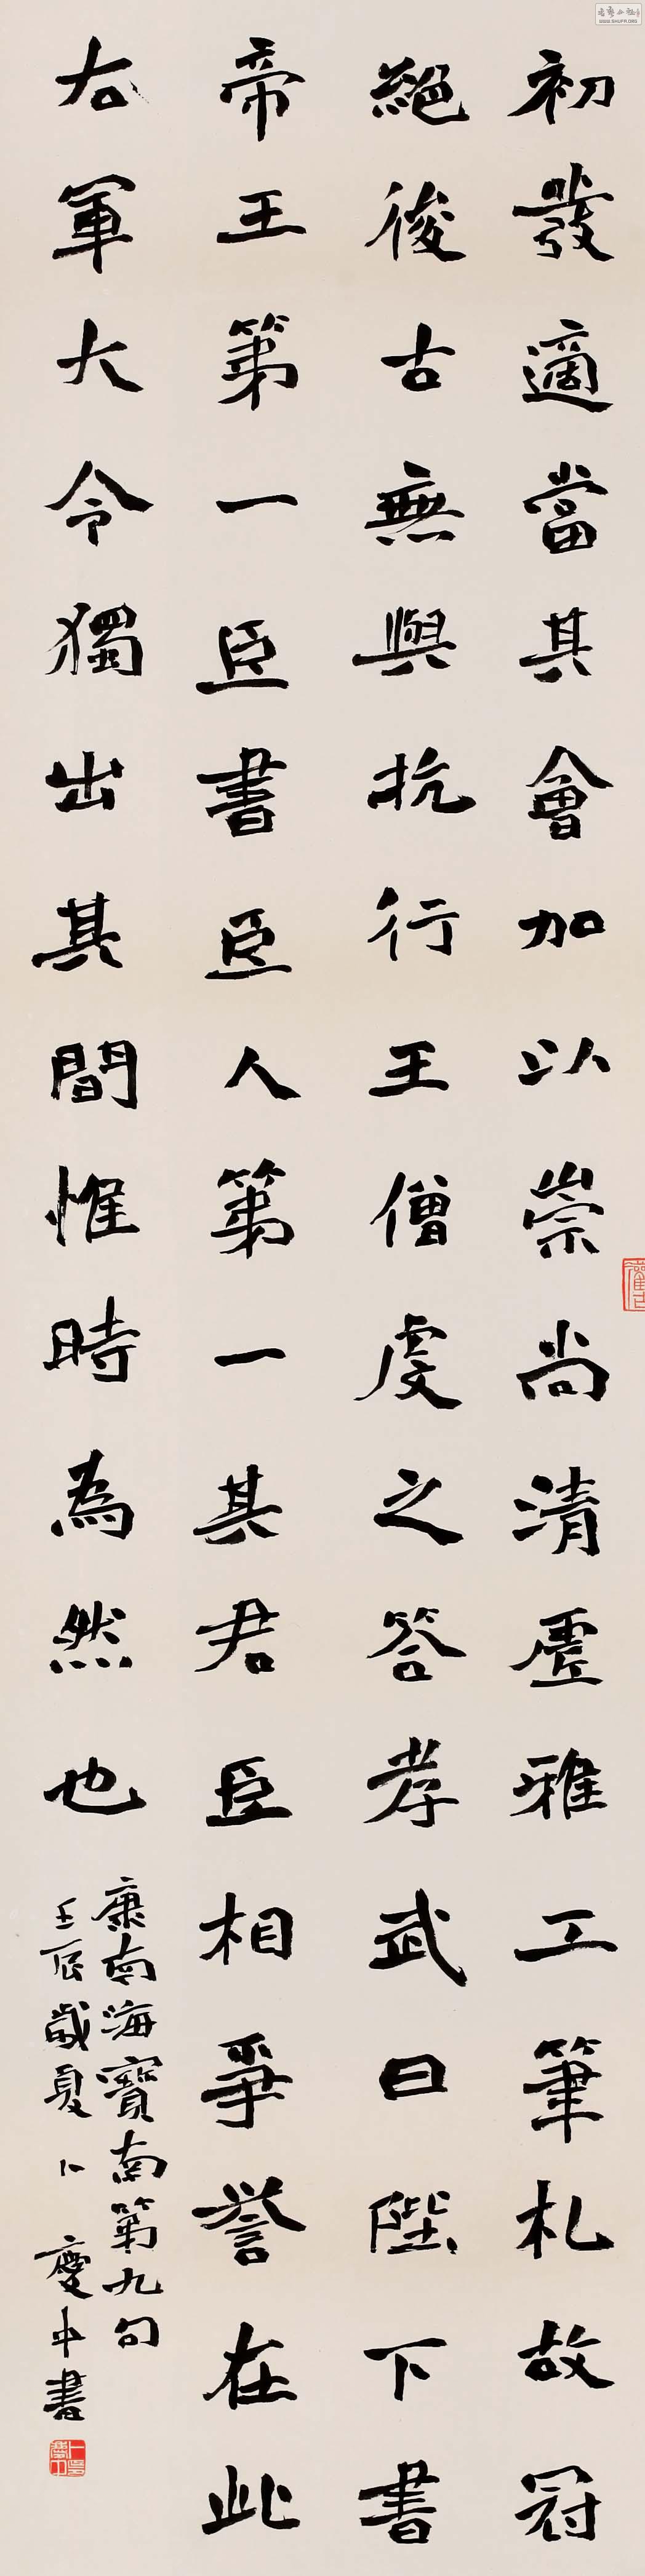 初發適當其會加以崇尚清虛雅工筆札故冠
絕後古無與抗行王僧虔之答孝武曰陛下書
帝王第一臣書臣人第一其君臣相爭譽在此
右軍大令獨出其間惟時為然也
康南海寶南第九句
壬辰歲夏卜慶中書
WWW.SHUFA.ORG